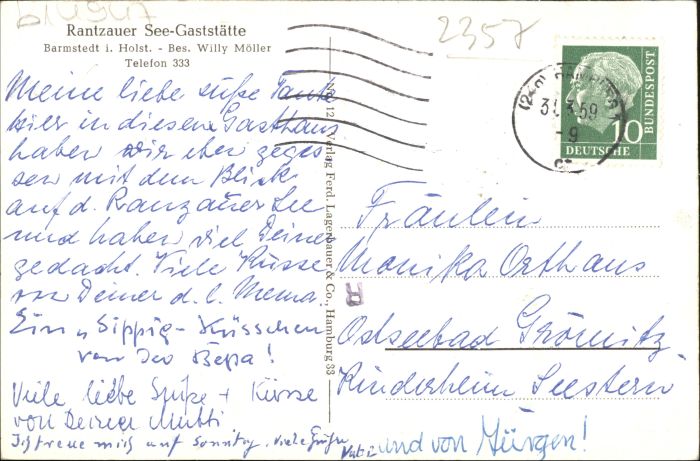 2357
Rantzauer See-Gaststätte
Barmstedt i. Holst. - Bes. Willy Möller
Telefon 333
Meine liebe süße Tante
Hier in diesem Gasthaus
haben wir eben geges-
sen mit dem Blick
auf d. Ranzauer See
und haben viel Deiner
gedacht. Viele Küsse
von Deiner d. l. Mema.
Ein Sippig-Küsschen
von Deo Bepa!
Viele liebe Grüße + Küsse
von Deiner Mutti
Ich freue mich auf Sonntag, viele Grüße
Vati
und von Jürgen!
Verlag Ferd. Lagerbauer & Co., Hamburg 33
31.3.59
-9
10
DEUTSCHE
BUNDESPOST
Fräulein
Monika Orthaus
Ostseebad Grömitz
Kinderheim Seestern